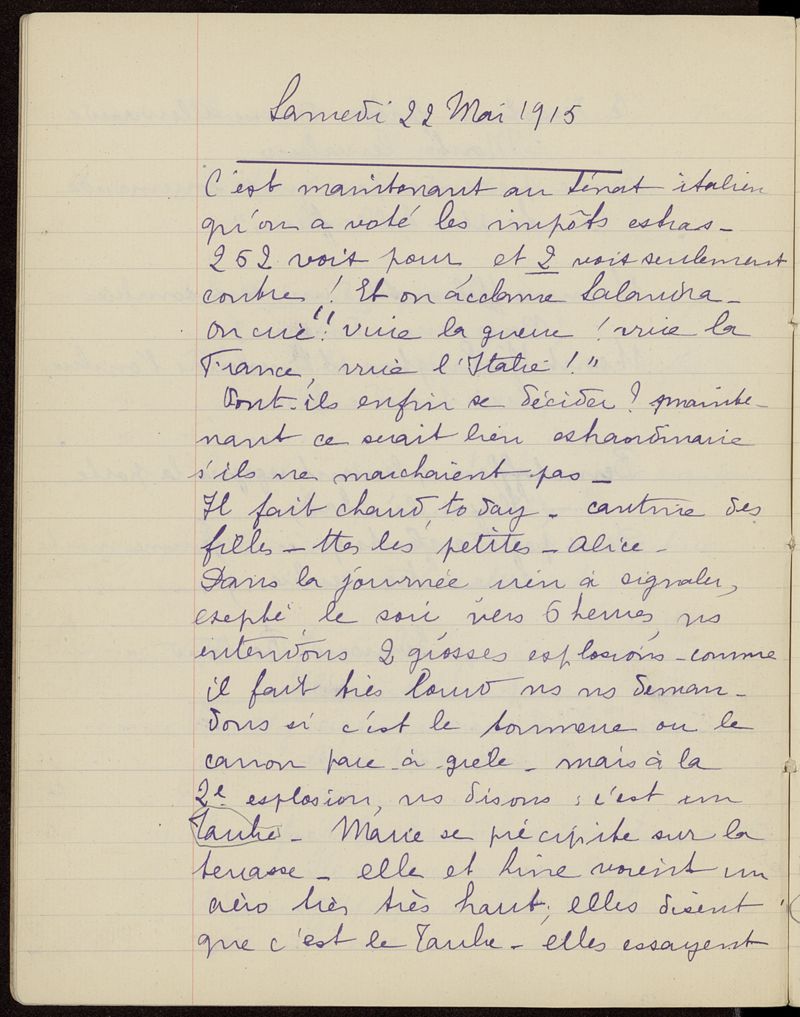 Samedi 22 Mai 1915
C'est maintenant au Sénat italien
qu'on a voté les impôts extras -
262 voix pour, et 2 voix seulement
contre ! Et on acclame Salandra -
on crie : "vive la guerre ! vive la
France, vive l'Italie ! "
Vont-ils enfin se décider ? mainte-
nant ce serait bien extraordinaire
s'ils ne marchaient pas -
Il fait chaud, to day - couture des
filles - ttes les petites - Alice -
Dans la journée rien à signaler,
excepté le soir vers 6 heures, ns
entendons 2 grosses explosions - comme
il fait très lourd ns ns deman-
dons si c'est le tonnerre ou le
canon para-à-grêle - mais à la
2e explosion, ns disons : c'est un
Taube - Marie se précipite sur la
terrasse - elle et Line voient un
aéro très très haut ; elles disent
que c'est le Taube - elles essayent